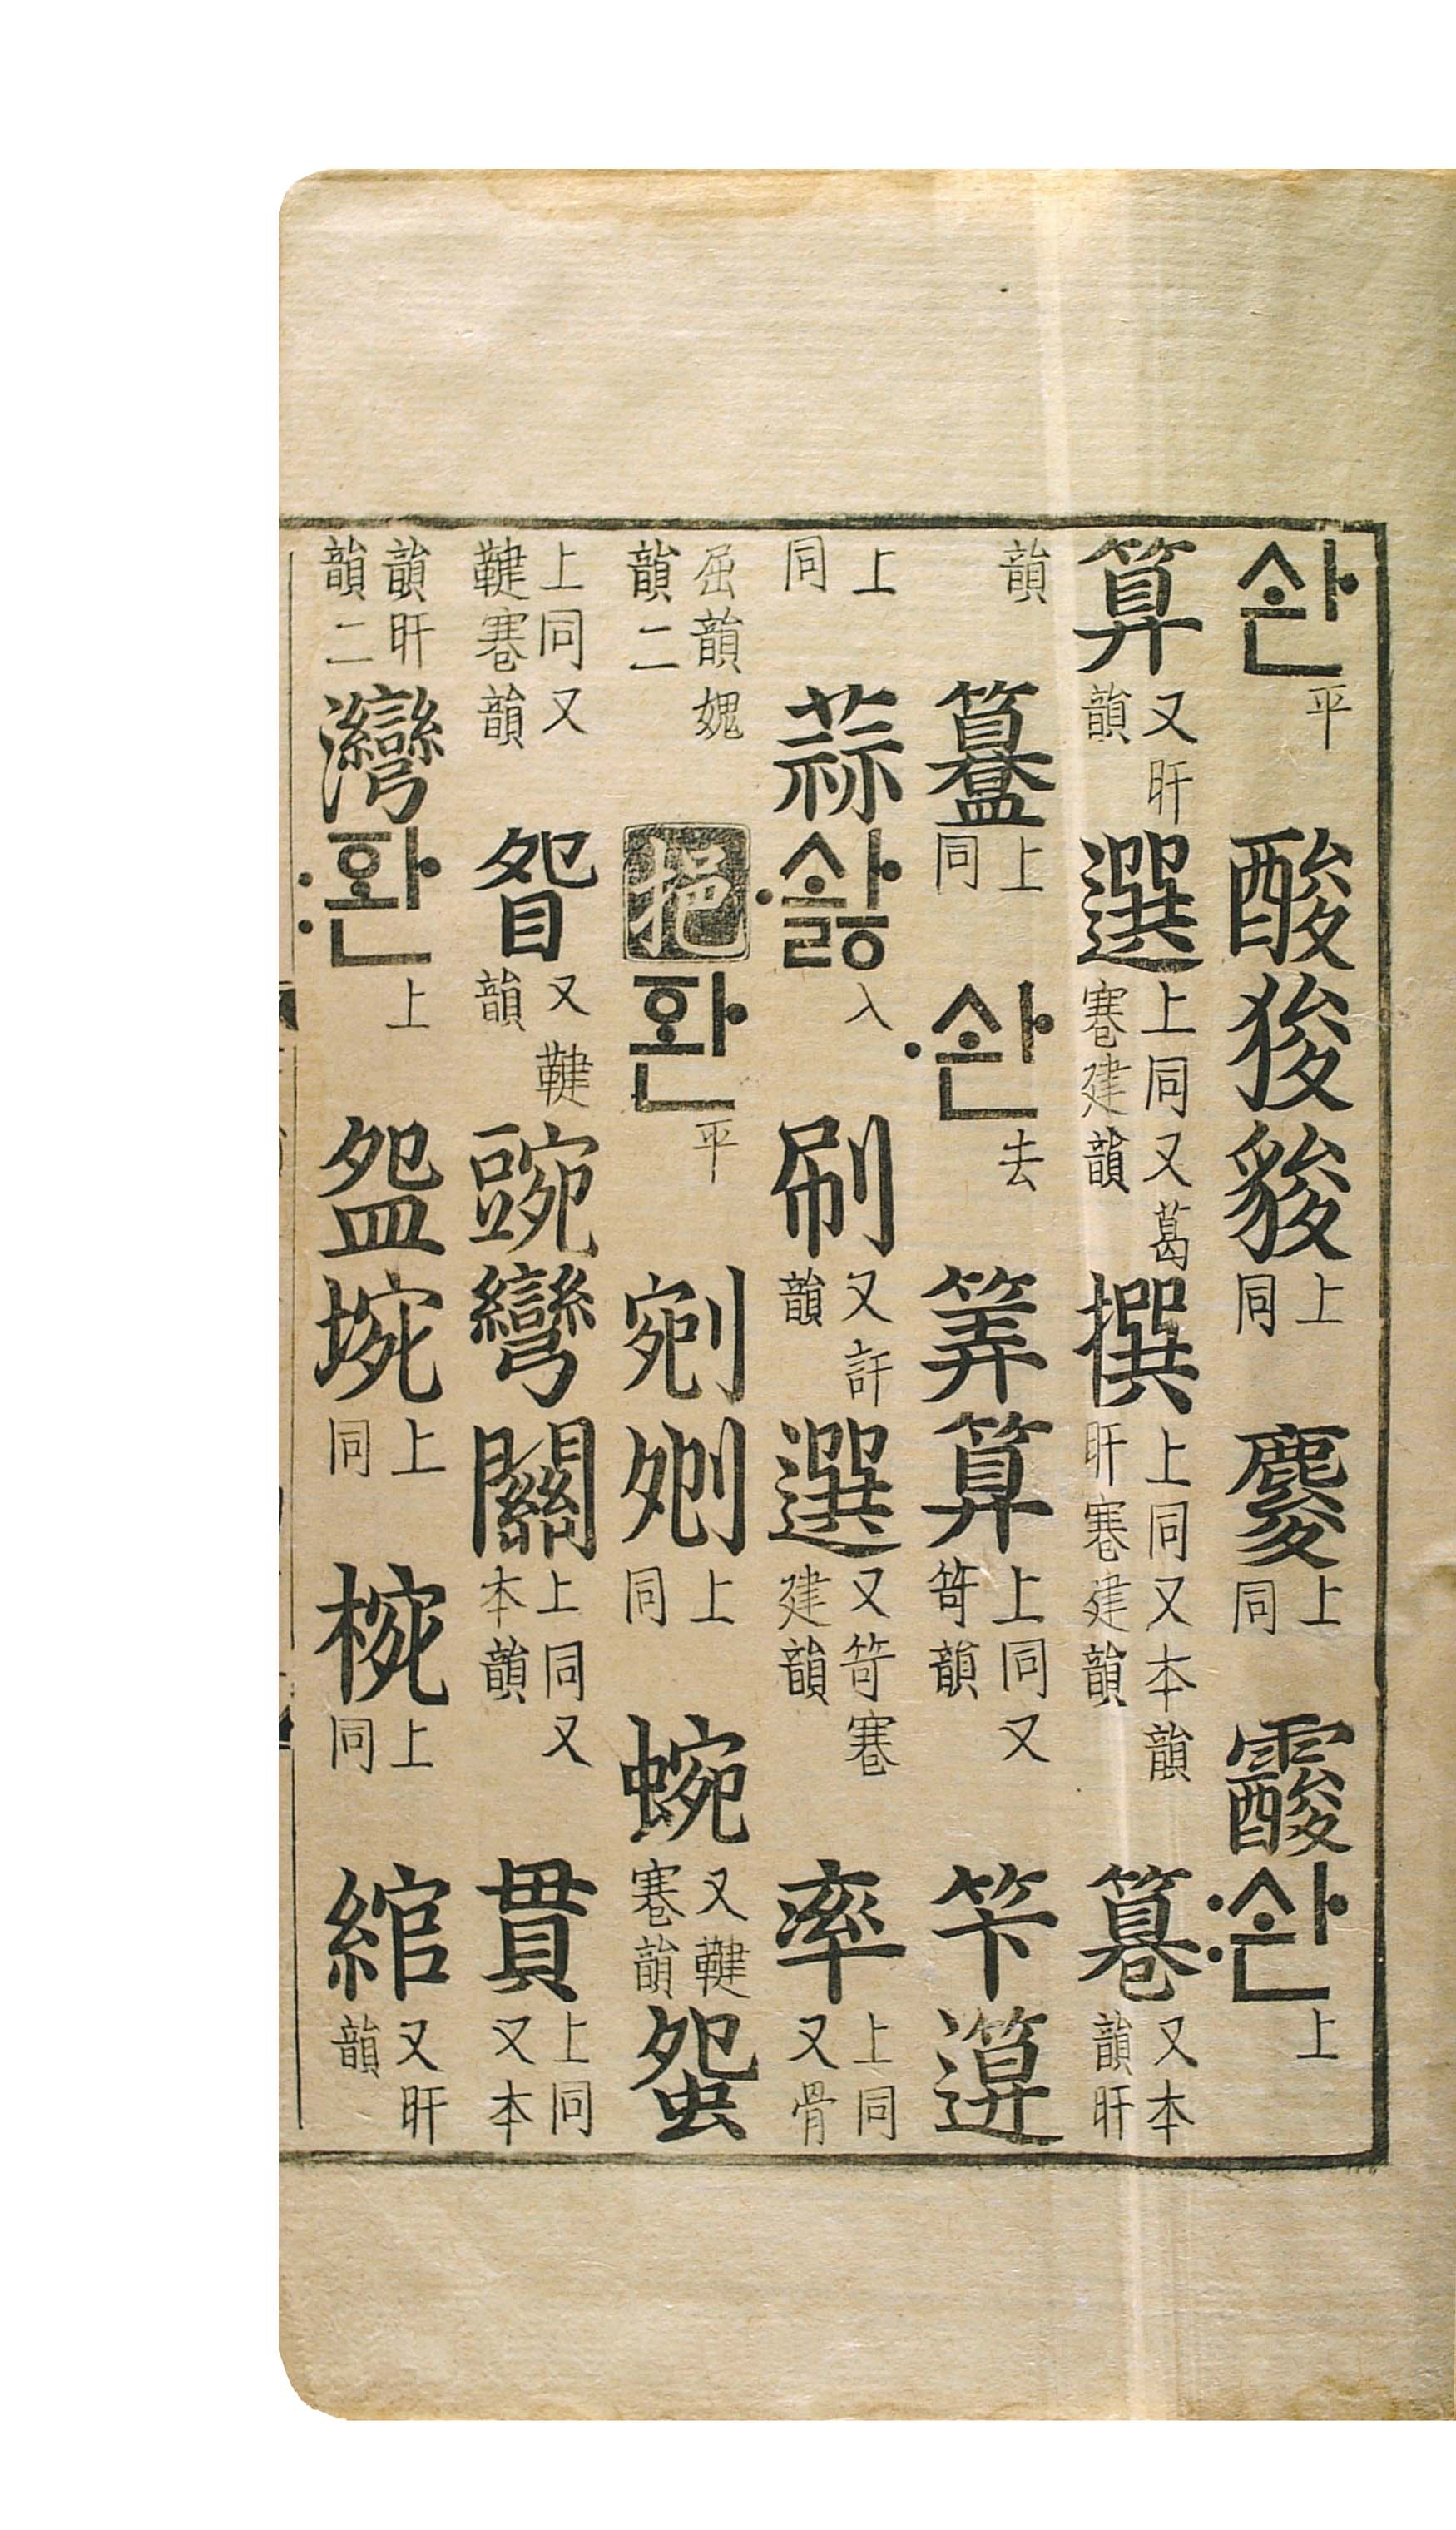 솬 平 酸狻 上同 上同 :솬 上
算 又旰韻 選 上同又葛建韻 撰 上同又本韻旰建韻 又本韻旰
韻 上同 ·솬 去 筭算 上同又笴韻 笇
上同 蒜 ·솨ᇙ 入 刷 又訐韻 選 又笴建韻 率 上同又骨
屈韻媿韻二 挹 ᅙᅪᆫ 平 剜 上同 蜿 又鞬韻
上同又鞬韻 眢 又鞬韻 豌彎關 上同又本韻 貫 上同又本
韻旰韻二 灣 :ᅙᅪᆫ 上 盌埦 上同 椀 上同 綰 又旰韻